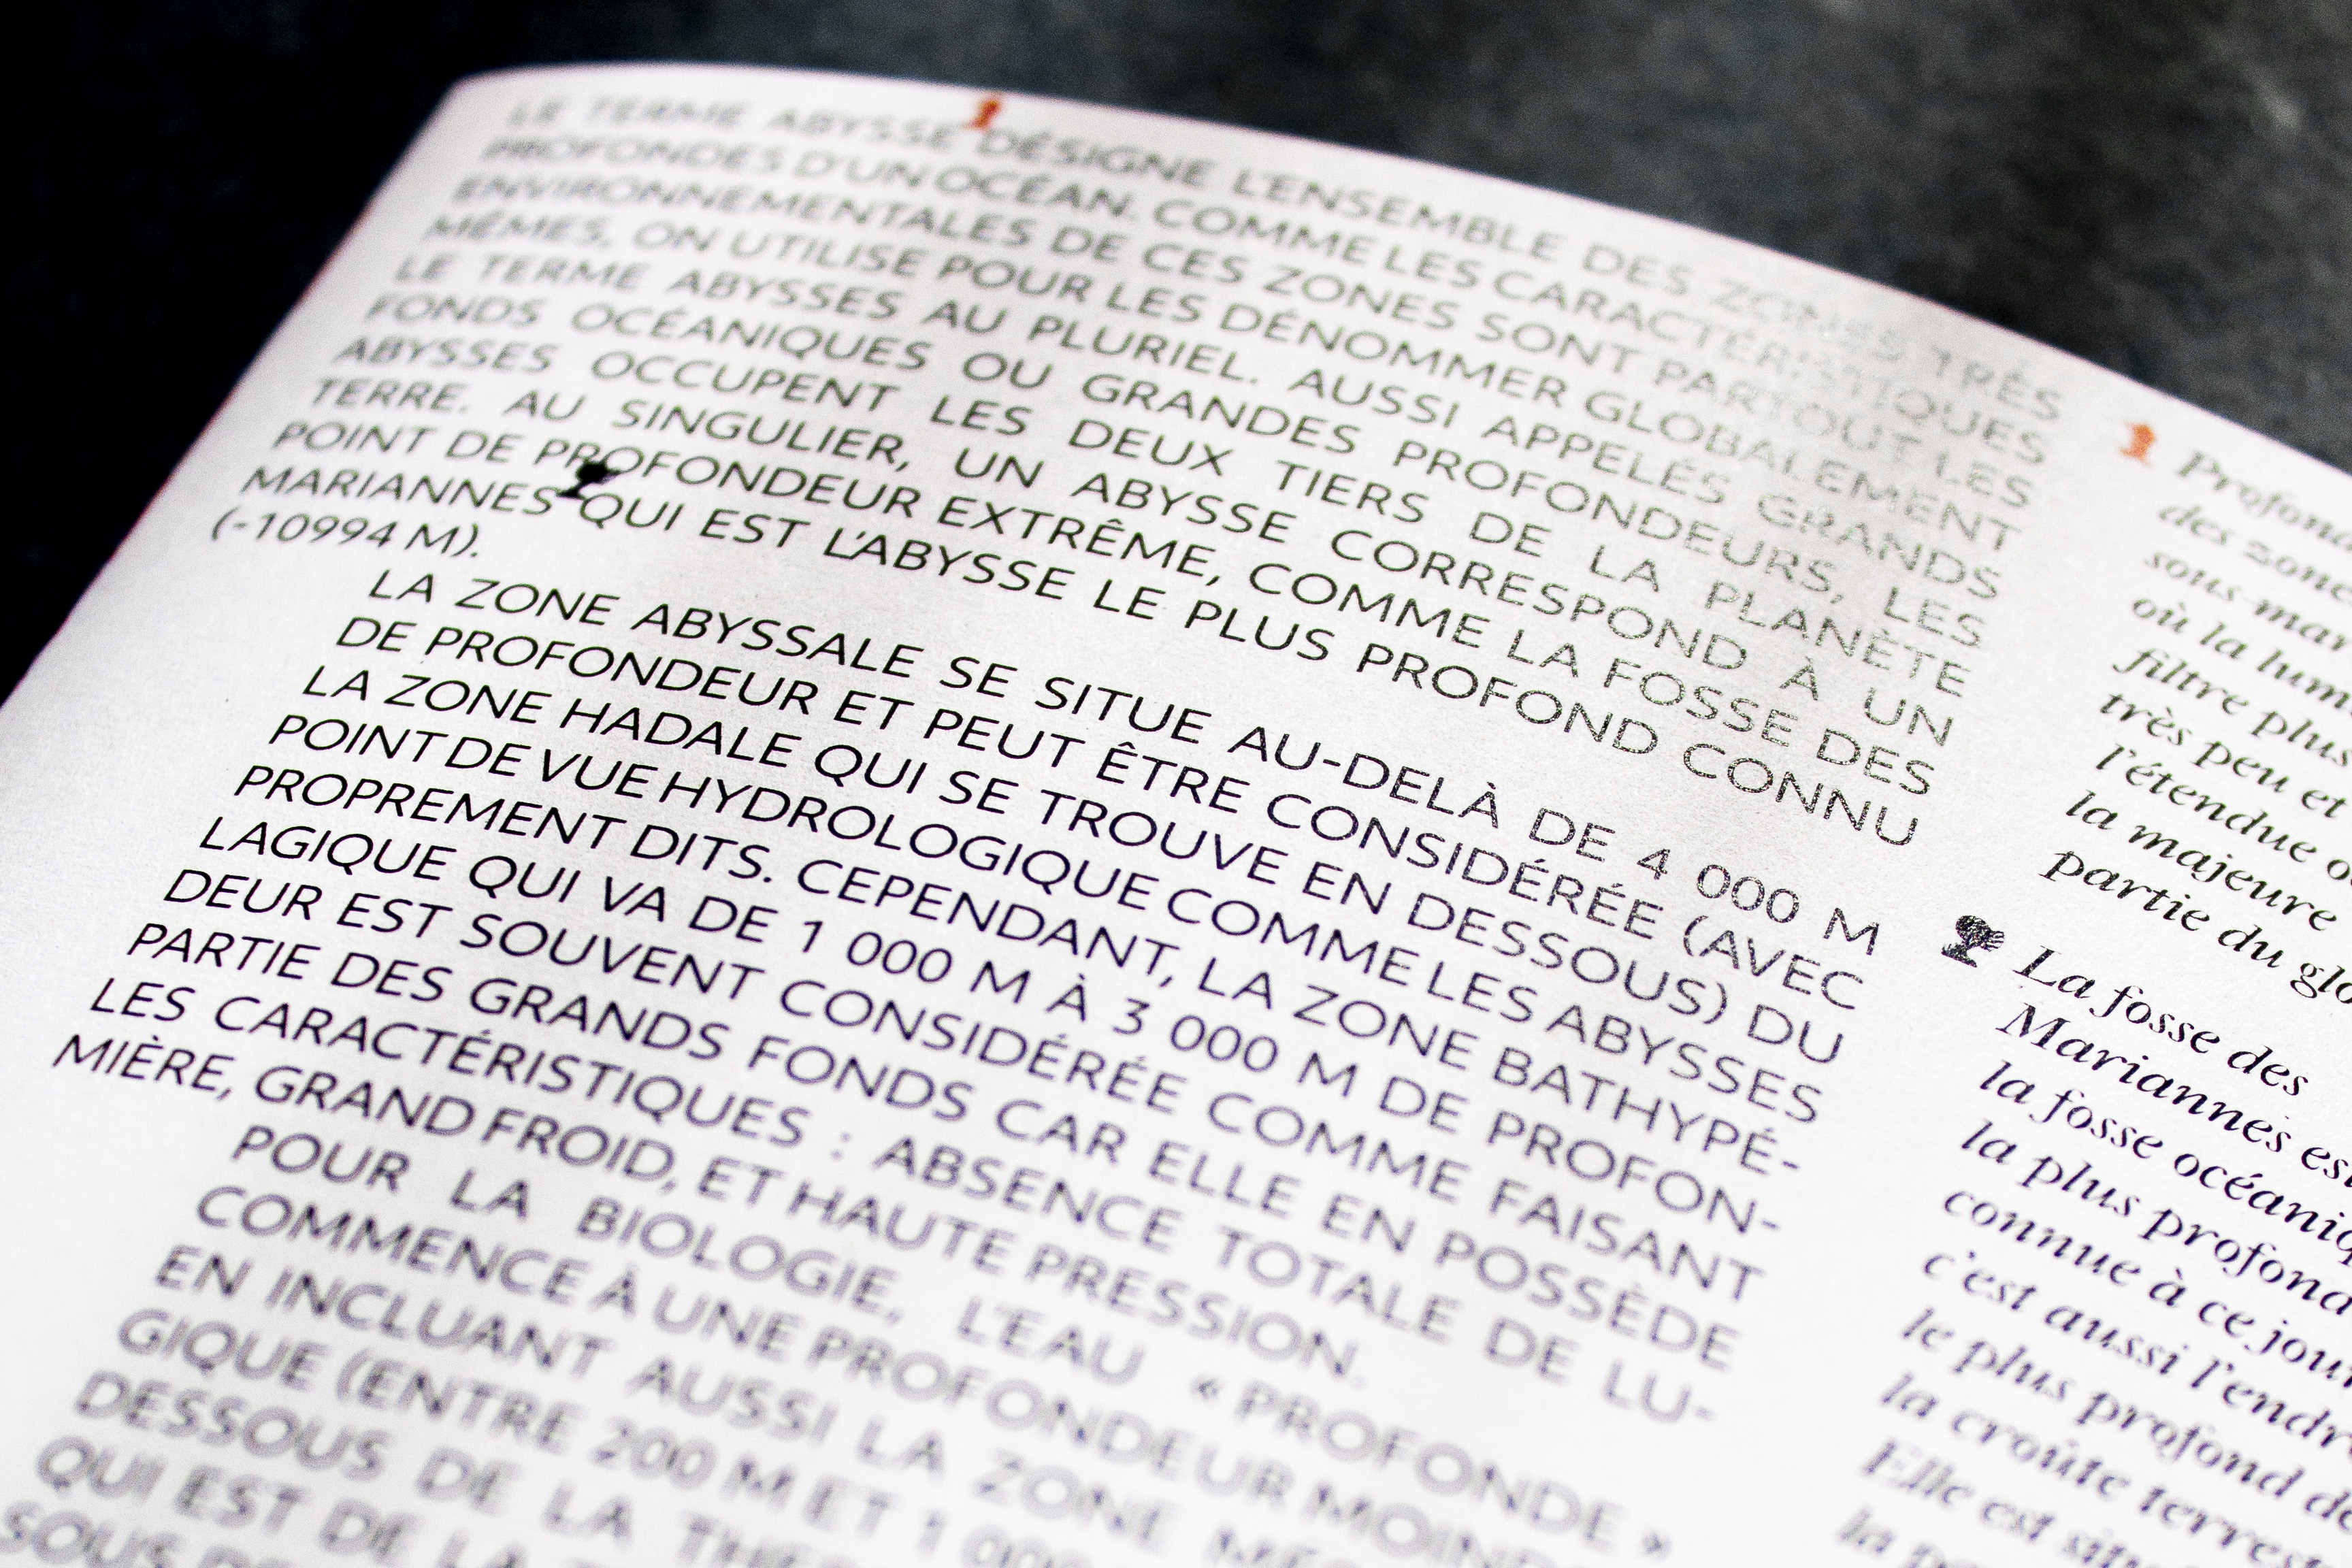 LE TERME ABYSSE 1 DÉSIGNE L'ENSEMBLE DES ZONES TRÈS
PROFONDES D'UN OCÉAN. COMME LES CARACTÉRISTIQUES
ENVIRONNEMENTALES DE CES ZONES SONT PARTOUT LES
MÊMES, ON UTILISE POUR LES DÉNOMMER GLOBALEMENT
LE TERME ABYSSES AU PLURIEL. AUSSI APPELÉS GRANDS
FONDS OCÉANIQUES OU GRANDES PROFONDEURS, LES
ABYSSES OCCUPENT LES DEUX TIERS DE LA PLANÈTE
TERRE. AU SINGULIER, UN ABYSSE CORRESPOND À UN
POINT DE PROFONDEUR EXTRÊME, COMME LA FOSSE DES
MARIANNES 2 QUI EST L'ABYSSE LE PLUS PROFOND CONNU
(-10994 M).
LA ZONE ABYSSALE SE SITUE AU-DELÀ DE 4 000 M
DE PROFONDEUR ET PEUT ÊTRE CONSIDÉRÉE (AVEC
LA ZONE HADALE QUI SE TROUVE EN DESSOUS) DU
POINT DE VUE HYDROLOGIQUE COMME LES ABYSSES
PROPREMENT DITS. CEPENDANT, LA ZONE BATHYPÉ-
LAGIQUE QUI VA DE 1 000 M À 3 000 M DE PROFON-
DEUR EST SOUVENT CONSIDÉRÉE COMME FAISANT
PARTIE DES GRANDS FONDS CAR ELLE EN POSSÈDE
LES CARACTÉRISTIQUES : ABSENCE TOTALE DE LU-
MIÈRE, GRAND FROID, ET HAUTE PRESSION.
POUR LA BIOLOGIE, L'EAU « PROFONDE »
COMMENCE À UNE PROFONDEUR
EN INCLUANT AUSSI LA ZONE
GIQUE (ENTRE 200 M ET 1 000
DESSOUS DE LA
QUI EST DE LA
SOUS
1 Profond
des zone
sous-mar
où la lum
filtre plus
très peu et
l'étendue
la majeure
partie du glo
2 La fosse des
Mariannes est
la fosse océaniq
la plus profond
connue à ce jour
c'est aussi l'endr
le plus profond de
la croûte terrest
Elle est situ
la